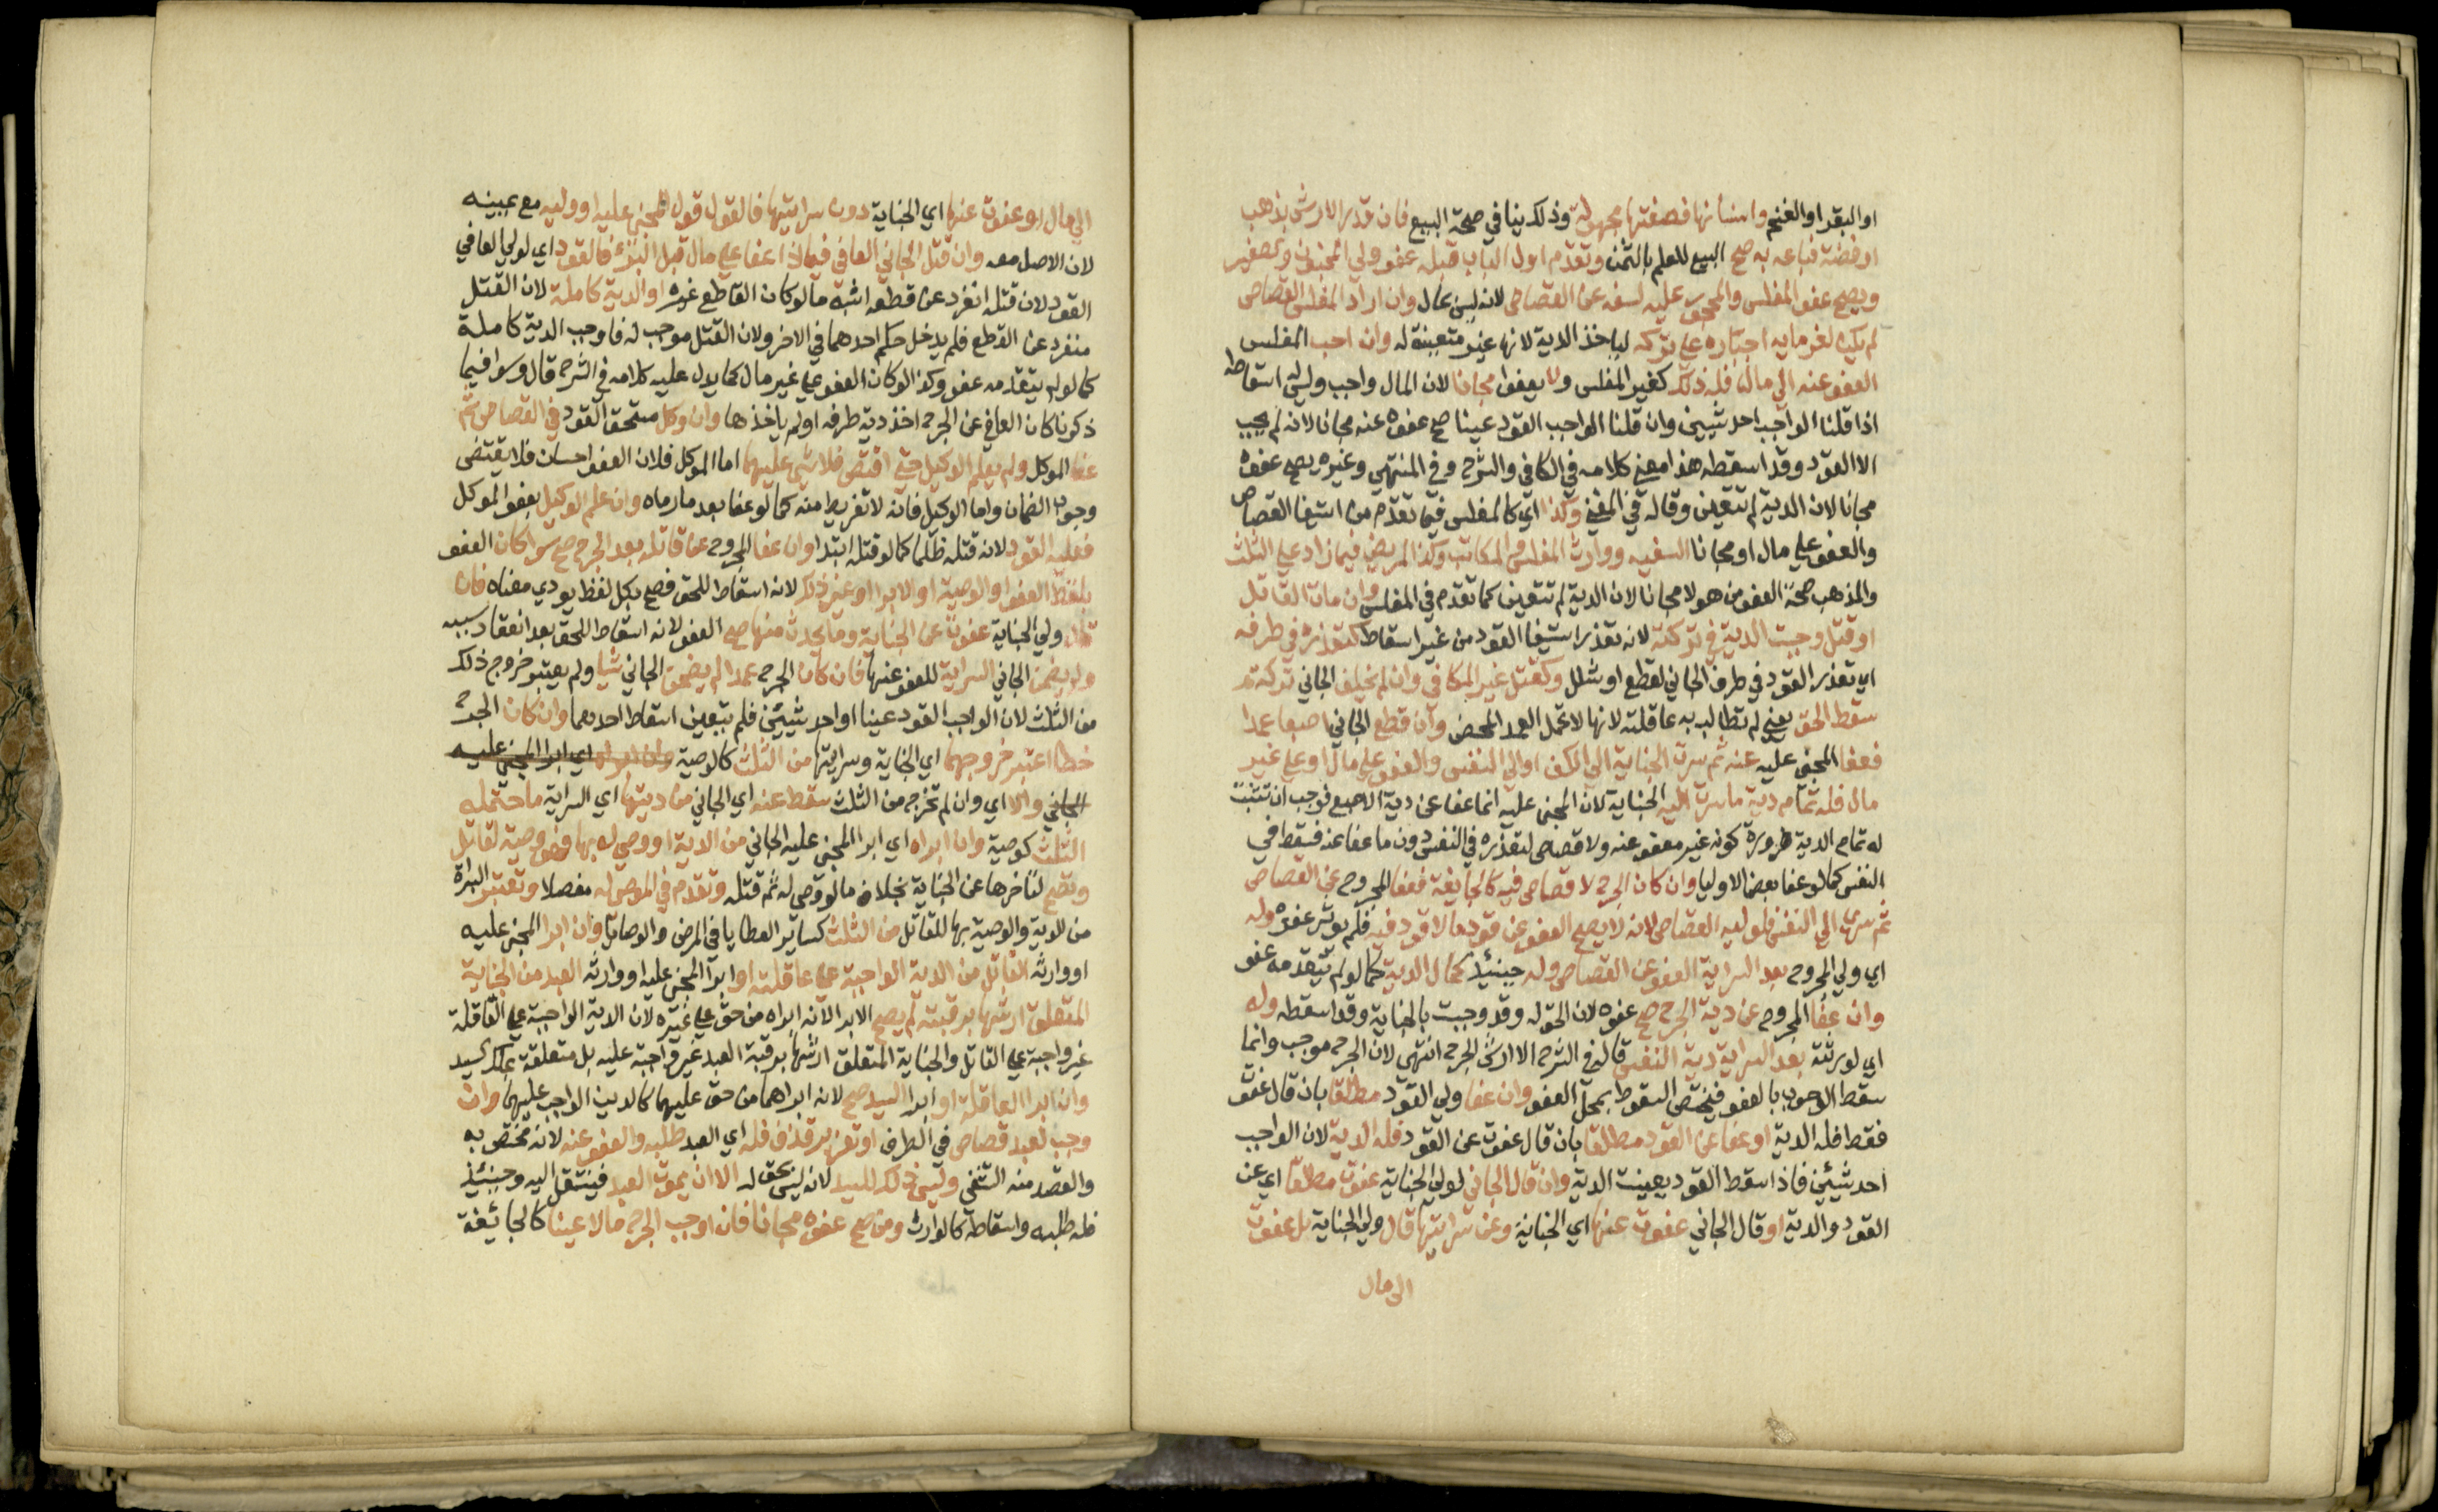 او البقر او الغنم واسنانها فصفتها مجهولة وذلك ينافي صحة البيع فان قدر الارش بذهب
او فضة فباعه به صح البيع للعلم بالثمن وتقدم اول الباب قبله عفو ولي المجنون والصغير
ويصح عفو المفلس والمحجور عليه لسفه عن القصاص لانه ليس بمال وان اراد المفلس القصاص
لم يكن لغرمايه اجباره على تركه لياخذ الدية لانها غير متعينة له وان احب المفلس
العفو عنه الي مال فله ذلك كغير المفلس ولا يعفوا مجانا لان المال واجب وليس له اسقاطه
اذا قلنا الواجب احد شيين وان قلنا الواجب القود عينا صح عفوه عنه مجانا لانه لم يجب
الا القود وقد اسقطه هذا معنى كلامه في الكافي والشرح وفي المنتهي وغيره يصح عفوه
مجانا لان الدية لم تتعين وقاله في المغني وكذا اي كالمفلس فيما تقدم من استيفا القصاص
والعفو على مال او مجانا السفيه ووارث المفلس والمكاتب وكذا المريض فيما زاد على الثلث
والمذهب صحة العفو من هولا مجانا لان الدية لم تتعين كما تقدم في المفلس وان مات القاتل
او قتل وجبت الدية في تركته لانه تعذر استيفا القود من غير اسقاط كتعذره في طرفه
اي تعذر القود في طرف الجاني لقطع او شلل وكقتل غير المكافي وان لم يخلف الجاني تركة
سقط الحق يعني لم تطالب به عاقلته لانها لا تحمل العمد المحض وان قطع الجاني اصبعا عمدا
فعفا المجني عليه عنه ثم سرت الجناية الي الكف او الي النفس والعفو على مال او على غير
مال فله تمام دية ما سرت اليه الجناية لان المجني عليه انما عفا عن دية الاصبع فوجب ان تثبت
له تمام الدية ضرورة كونه غير معفو عنه ولا قصاص لتعذره في النفس دون ما عفا عنه فسقط في
النفس كما لو عفا بعض الاوليا وان كان الجرح لا قصاص فيه كالجايفة فعفا المجروح عن القصاص
ثم سرى الي النفس فلوليه القصاص لانه لا يصح العفو عن قود ما لا قود فيه فلم يوثر عفوه وله
اي ولي المجروح بعد السراية العفو عن القصاص وله حينئذ كمال الدية كما لو لم يتقدمه عفو
وان عفا المجروح عن دية الجرح صح عفوه لان الحق له وقد وجبت بالجناية وقد اسقطه وله
اي لورثته بعد السراية دية النفس قال في الشرح الا ارش الجرح انتهى لان الجرح موجب وانما
سقط الوجوب بالعفو فيختص السقوط بمحل العفو وان عفا ولي القود مطلقا بان قال عفوت
فقط فله الدية او عفا عن القود مطلقا بان قال عفوت عن القود فله الدية لان الواجب
احد شيئين فاذا سقط القود تعينت الدية وان قال الجاني لولي الجناية عفوت مطلقا اي عن
القود والدية او قال الجاني عفوت عنها اي الجناية وعن سرايتها قال ولي الجناية بل عفوت
الى مال
الي مال او عفوت عنها اي الجناية دون سرايتها فالقول قول المجني عليه او وليه مع يمينه
لان الاصل معه وان قتل الجاني العافي فيما اذا عفا على مال قبل البرء فالقود اي لولي العافي
القود لان قتله انفرد عن قطعه اشبه ما لو كان القاطع غيره او الدية كاملة لان القتل
منفرد عن القطع فلم يدخل حكم احدهما في الاخر ولان القتل موجب له فاوجب الدية كاملة
كما لو لم يتقدمه عفو وكذا لو كان العفو على غير مال كما يدل عليه كلامه في الشرح قال وسوا فيما
ذكرنا كان العافي عن الجرح اخذ دية طرفه او لم ياخذها وان وكل مستحق القود في القصاص ثم
عفا الموكل ولم يعلم الوكيل حتى اقتص فلا شي عليهما اما الموكل فلان العفو احسان فلا يقتضى
وجوب الضمان واما الوكيل فانه لا تفريط منه كما لو عفا بعد ما رماه وان علم الوكيل بعفو الموكل
فعليه القود لانه قتله ظلما كما لو قتله ابتدا وان عفا المجروح عن قاتله بعد الجرح صح سوا كان العفو
بلفظ العفو او الوصية او الابرا او غير ذلك لانه اسقاط للحق فصح بكل لفظ يودي معناه فان
قال ولي الجناية عفوت عن الجناية وما يحدث منها صح العفو لانه اسقاط للحق بعد انعقاد سببه
ولم يضمن الجاني السراية للعفو عنها فان كان الجرح عمدا لم يضمن الجاني شيا ولم يعتبر خروج ذلك
من الثلث لان الواجب القود عينا او احد شيئين فلم يتعين اسقاط احدهما وان كان الجرح
خطا اعتبر خروجهما اي الجناية وسرايتها من الثلث كالوصية وان ابراه اي ابرا المجني عليه
الجاني والا اي وان لم تخرج من الثلث سقط عنه اي الجاني من ديتها اي السراية ما احتمله
الثلث كوصية وان ابراه اي ابرا المجني عليه الجاني من الدية او وصى له بها فهو وصية لقاتل
وتصح لتاخرها عن الجناية بخلاف ما لو وصى له ثم قتله وتقدم في الموصى له مفصلا وتعتبر البراة
من الدية والوصية بها للقاتل من الثلث كساير العطايا في المرض والوصايا وان ابرا المجني عليه
او وارثه القاتل من الدية الواجبة على عاقلته او ابرا المجني عليه او وارثه العبد من الجناية
المتعلق ارشها برقبته لم يصح الابرا لانه ابراه من حق على غيره لان الدية الواجبة على العاقلة
غير واجبة على القاتل والجناية المتعلق ارشها برقبة العبد غير واجبة عليه بل متعلقة بملك السيد
وان ابرا العاقلة او ابرا السيد صح لانه ابراهما من حق عليهما كالدين الواجب عليهما وان
وجب لعبد قصاص في الطرف او تعزير قذف فله اي العبد طلبه والعفو عنه لانه مختص به
والقصد منه التشفي وليس ذلك للسيد لانه ليس بحق له الا ان يموت العبد فينتقل اليه وحينئذ
فله طلبه واسقاطه كالوارث ومن صح عفوه مجانا فان اوجب الجرح مالا عينا كالجائفة